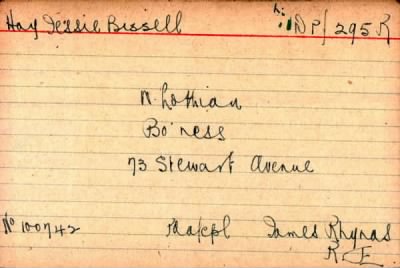 Hay Jessie Bissell DP/295 R
W. Lothian
Bo'ness
73 Stewart Avenue
No 100742 James Rhynas
R.E